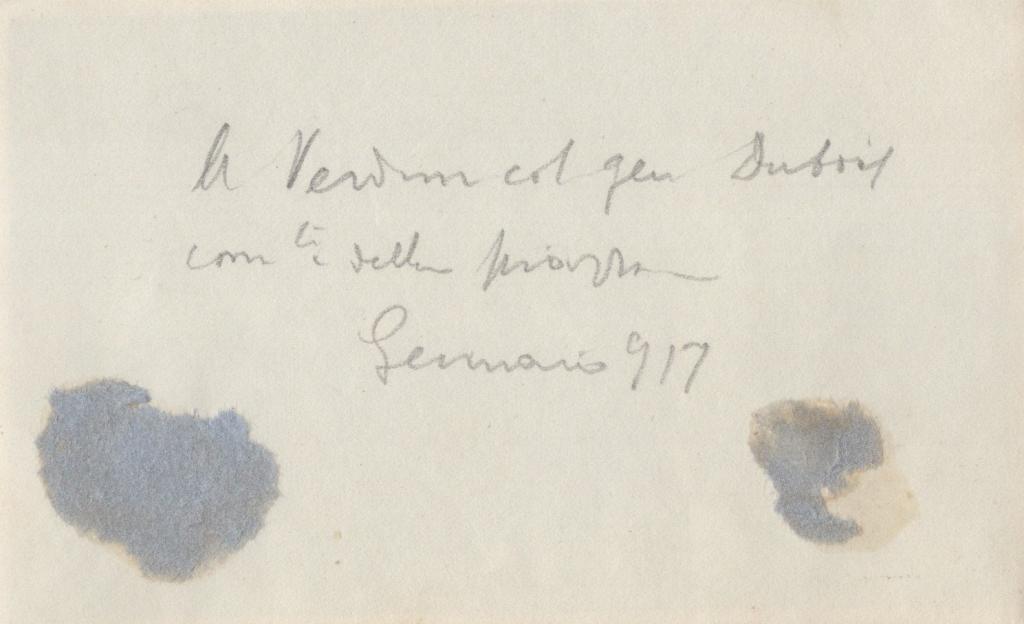 A Verdun col gen Dubois
com.te della piazza
Gennaio 917